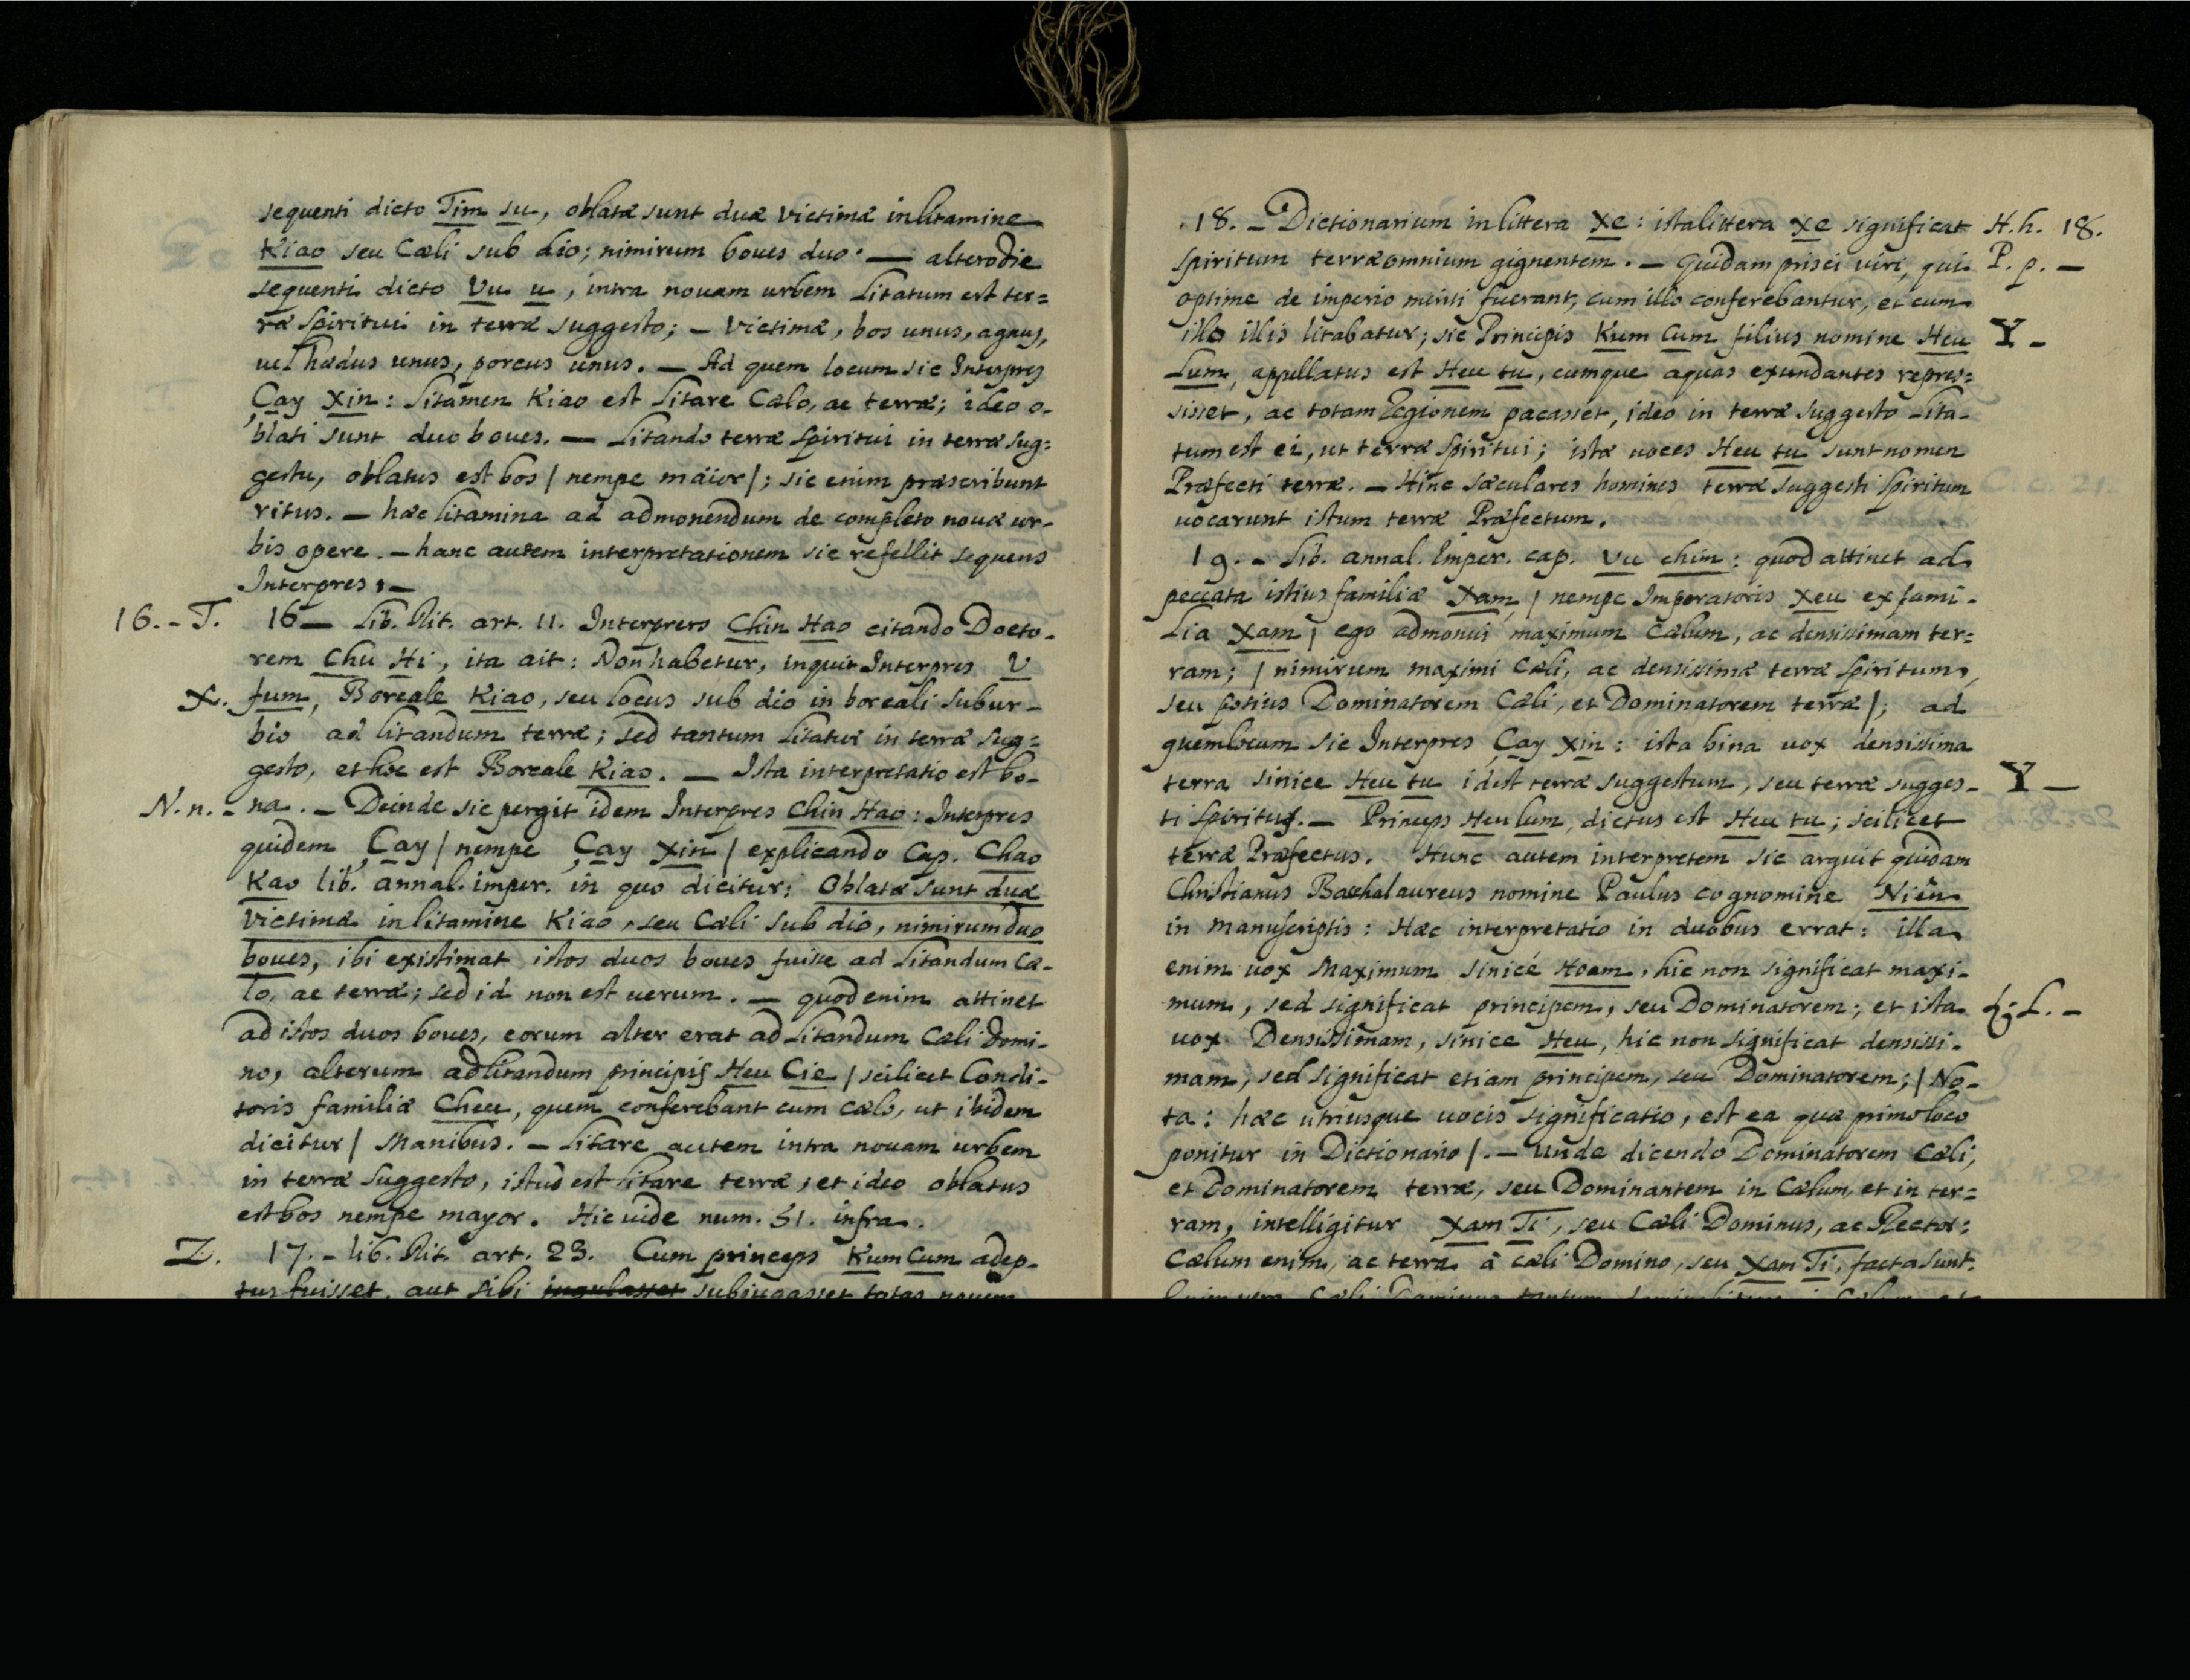 sequenti dicto Tim su, oblatæ sunt duæ victimæ in litamine
Kiao seu Cæli sub dio; nimirum boues duo. — altero die
sequenti dicto Vu u, intra nouam urbem litatum est ter=
ræ spiritui in terræ suggesto; — victimæ, bos unus, agnus,
uel hædus unus, porcus unus. — Ad quem locum sic Interpres
Çay Xin: litamen Kiao est litare Cælo, ac terræ; ideo o-
blati sunt duo boues. — litando terræ spiritui in terræ sug=
gestu, oblatus est bos / nempe maior /; sic enim præscribunt
ritus. — hæc litamina ad admonendum de completo nouæ ur-
bis opere. — hanc autem interpretationem sic refellit sequens
Interpres. —
16. - T. 16 — Lib. Rit. art. 11. Interprers Chin Hao citando Docto-
rem Chu Hi, ita ait: Non habetur, inquit Interpres V
X. fum, Boreale Kiao, seu locus sub dio in boreali subur-
bio ad litandum terræ; sed tantum litatur in terræ sug=
gesto, et hoc est Boreale Kiao. — Ista interpretatio est bo-
N. n. - na. - Deinde sic pergit idem Interpres Chin Hao: Interpres
quidem Çay / nempe Çay Xin / explicando Cap. Chao
Kao lib. annal. imper. in quo dicitur: Oblatæ sunt duæ
victimæ in litamine Kiao, seu Cæli sub dio, nimirum duo
boues, ibi existimat istos duos boues fuisse ad litandum Cæ-
lo, ac terræ; sed id non est uerum. — quod enim attinet
ad istos duos boues, eorum alter erat ad litandum Cæli Domi-
no, alterum ad litandum principis Heu Cie / scilicet Condi-
toris familiæ Cheu, quem conferebant cum cælo, ut ibidem
dicitur / Manibus. — litare autem intra nouam urbem
in terræ suggesto, istud est litare terræ, et ideo oblatus
est bos nempe mayor. Hic uide num. 51. infra.
Z. 17. - lib. Rit. art. 23. Cum princeps Kum Cum adep-
tus fuisset, aut sibi jugulasset subiugasset totas nouem
18. - Dictionarium in littera Xe: ista littera Xe significat H. h. 18.
spiritum terræ omnium gignentem. — Quidam prisci viri, qui P. p. —
optime de imperio meriti fuerant, cum illo conferebantur, et cum
illo illis litabatur; sic Principis Kum Cum filius nomine Heu Y -
Lum, appellatus est Heu tu, cumque aquas exundantes repres=
sisset, ac totam Regionem pacasset, ideo in terræ suggesto lita-
tum est ei, ut terræ spiritui; istæ uoces Heu tu sunt nomen
Præfecti terræ. — Hinc sæculares homines terræ suggesti spiritum
uocarunt istum terræ Præfectum.
19. - Lib. annal. Imper. cap. Vu chim: quod attinet ad
peccata istius familiæ Xam / nempe Imperatoris Xeu ex fami-
lia Xam / ego admonui maximum Cælum, ac densissimam ter=
ram; / nimirum maximi Cæli, ac densissimæ terræ spiritum,
seu potius Dominatorem Cæli, et Dominatorem terræ /; ad
quem locum sic Interpres Çay Xin: ista bina uox densissima
terra sinice Heu tu idest terræ suggestum, seu terræ sugges- Y —
ti spiritus. — Princeps Heu lum, dictus est Heu tu; scilicet
terræ Præfectus. Hunc autem interpretem sic arguit quidam
Christianus Bacchalaureus nomine Paulus cognomine Niên
in manuscriptis: Hæc interpretatio in duobus errat: illa
enim uox Maximum sinicé Hoam, hic non significat maxi-
mum, sed significat principem, seu Dominatorem; et ista
uox Densissimam, sinice Heu, hic non significat densissi-
mam, sed significat etiam principem, seu Dominatorem; / No-
ta: hæc utriusque uocis significatio, est ea quæ primo loco
ponitur in Dictionario /. — Unde dicendo Dominatorem Cæli,
et Dominatorem terræ, seu Dominantem in Cælum, et in ter=
ram, intelligitur Xam Ti, seu Cæli Dominus, ac Rector:
Cælum enim, ac terra à cæli Domino, seu Xam Ti, facta sunt.